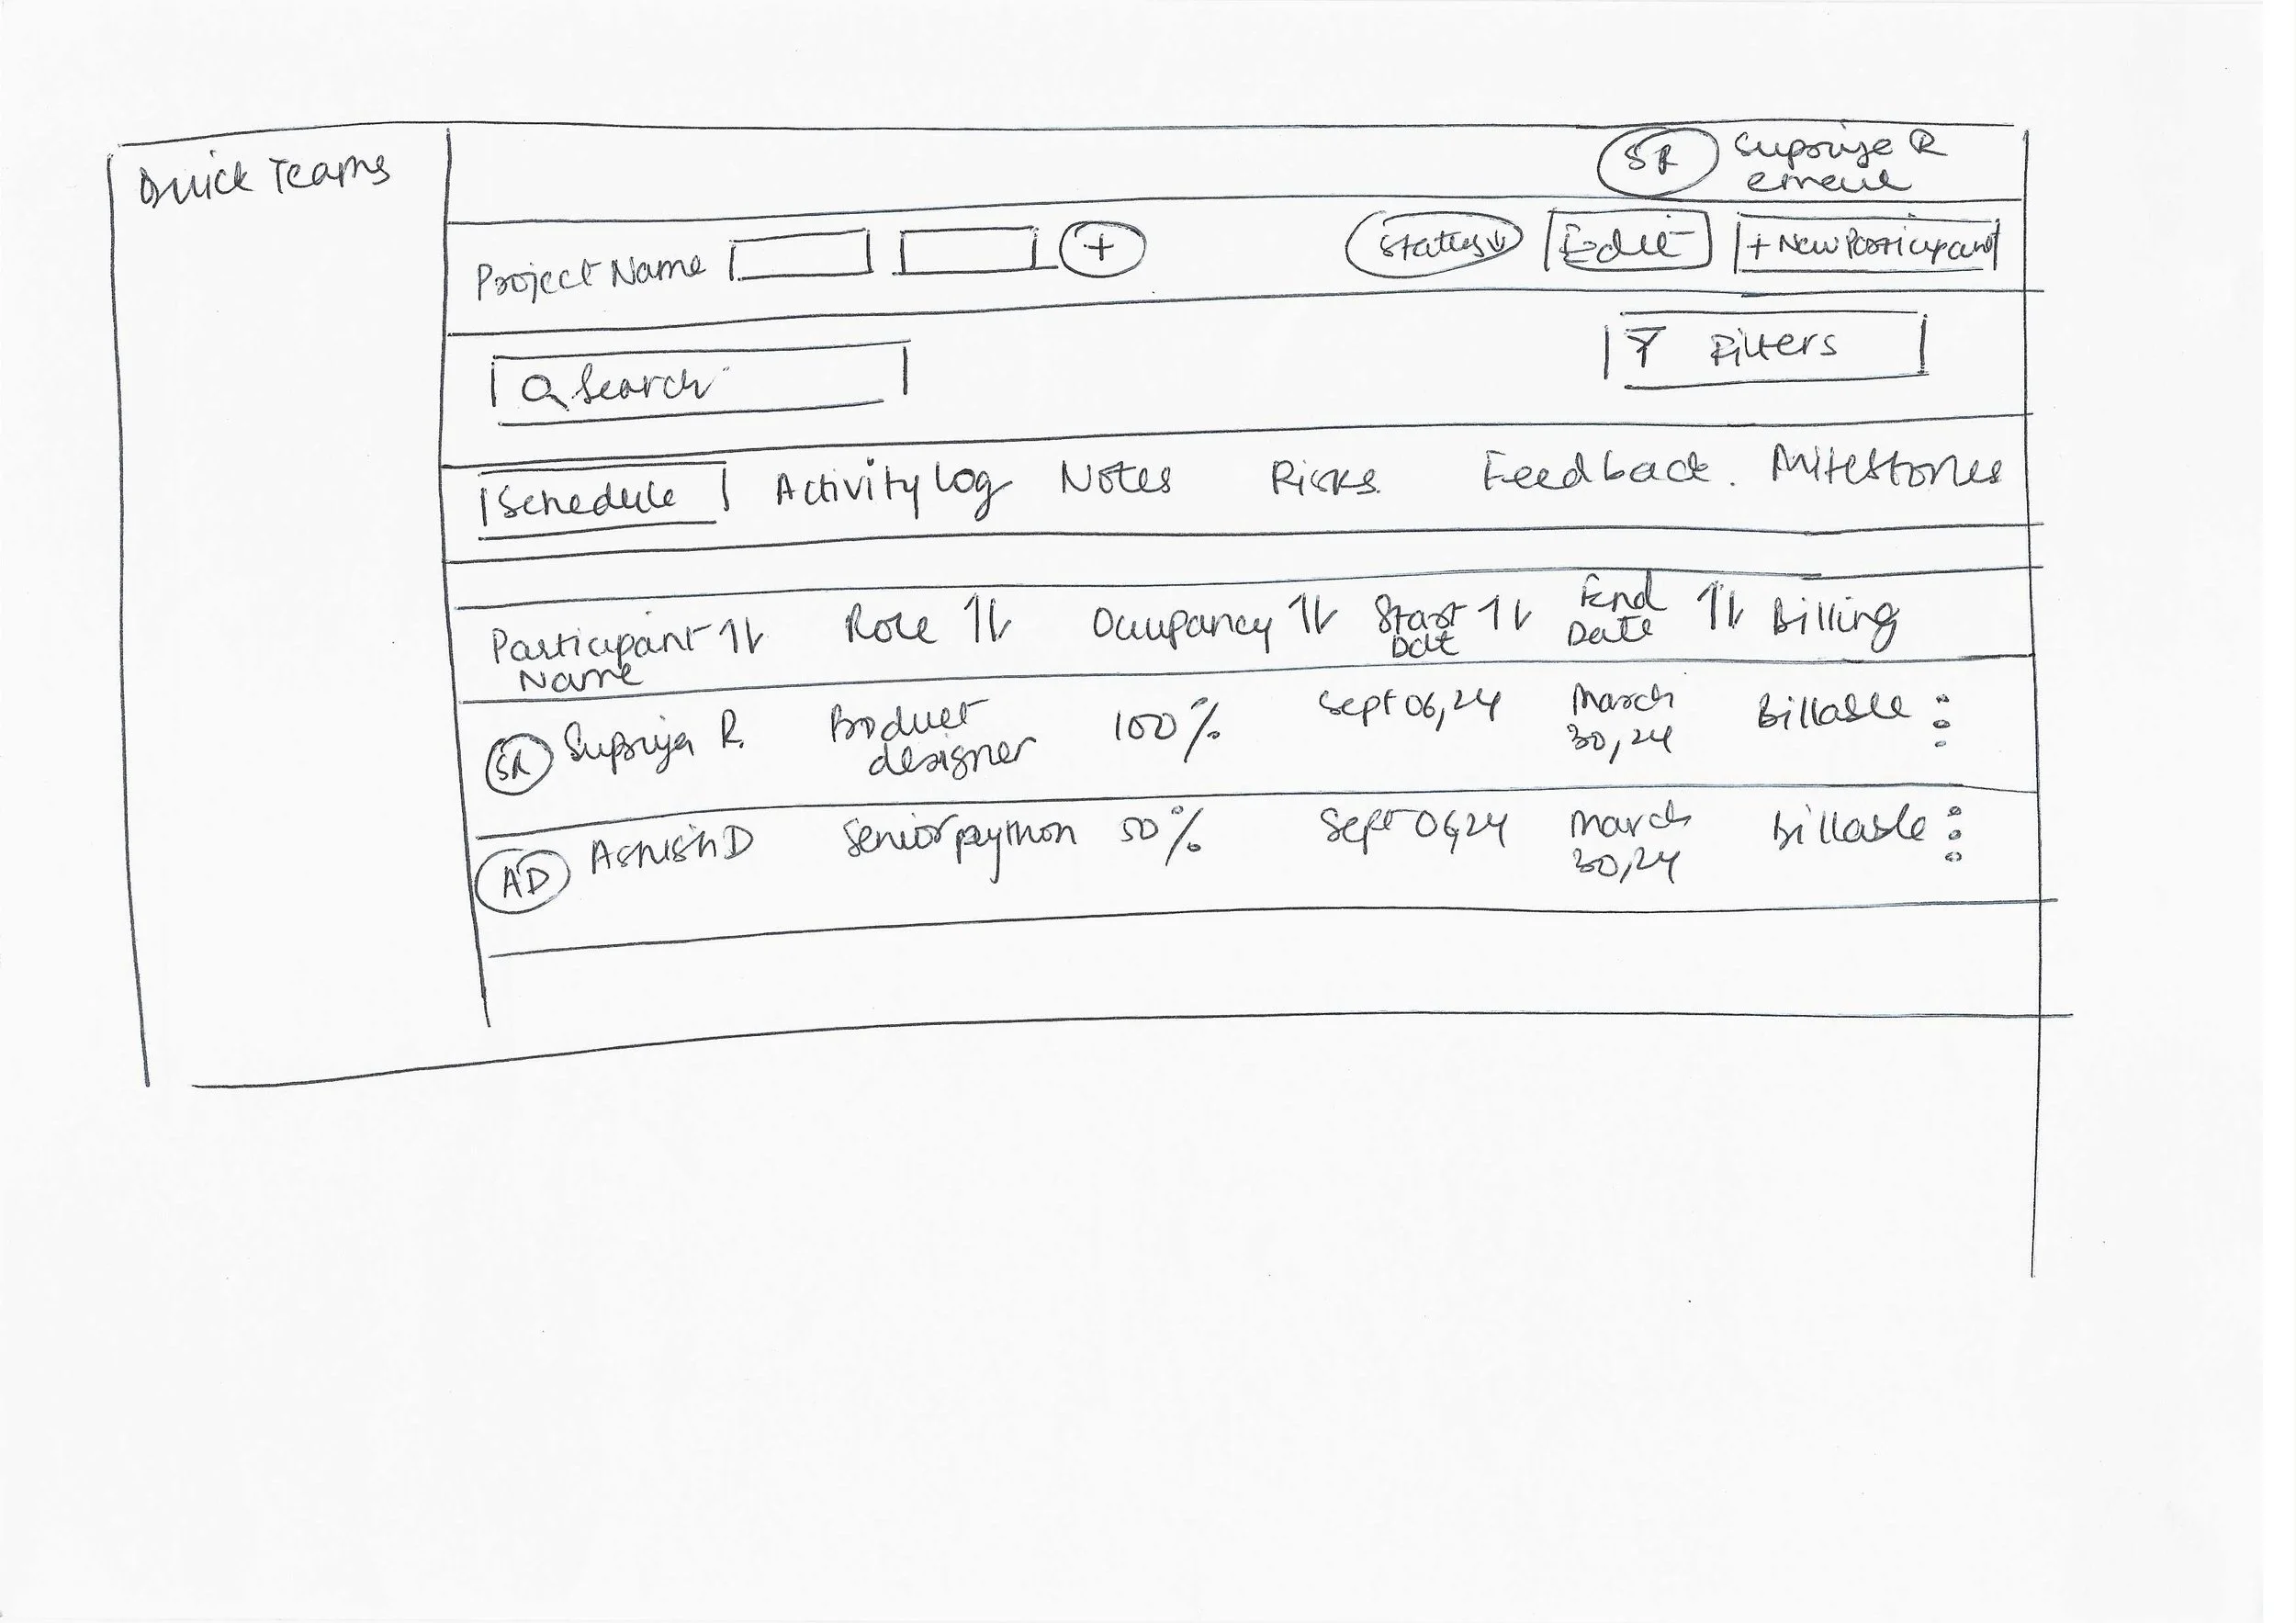 Quick Teams
SR Supriya R
email
Project Name + Status ↓ Edit + New Participant
Search Filters
Schedule Activity Log Notes Risks Feedback. Milestones
Participant ↑↓ Role ↑↓ Occupancy ↑↓ Start ↑↓ End ↑↓ Billing
Name Date Date
SR Supriya R. Product 100% Sept 06, 24 March Billable
designer 30, 24
AD Ashish D Senior python 50% Sept 06, 24 March Billable
30, 24